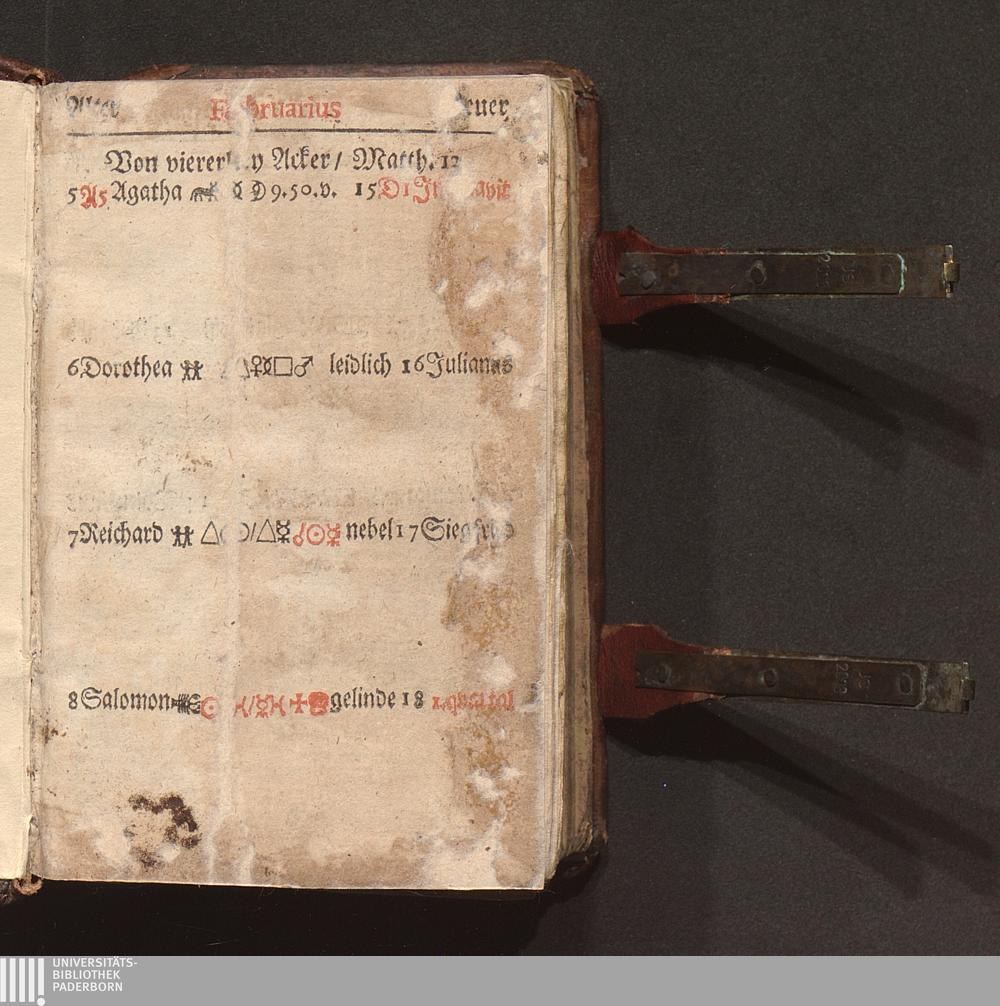 Alter Februarius Neuer
Von viererley Acker/ Matth. 13
5 A5 Agatha ☿ D 9.50.v. 15 D1 Invocavit
6 Dorothea △♀☿□♂ leidlich 16 Julianus
7 Reichard △☽/△☿ ☍☉☿ nebel 17 Siegfrid
8 Salomon gelinde 18 1. quartal
UNIVERSITÄTS-
BIBLIOTHEK
PADERBORN